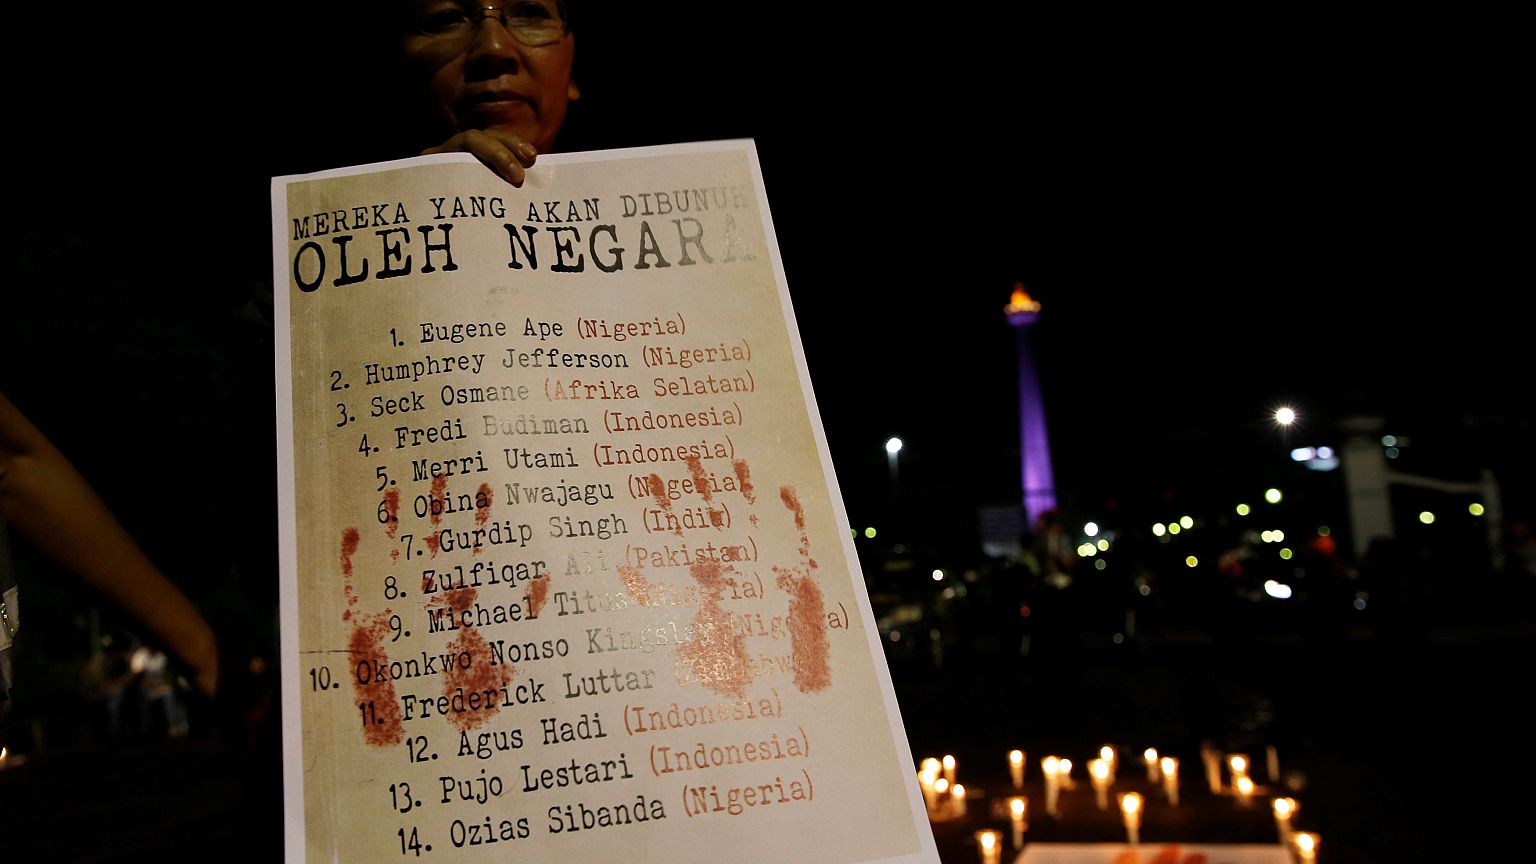 MEREKA YANG AKAN DIBUNUH
OLEH NEGARA
1. Eugene Ape (Nigeria)
2. Humphrey Jefferson (Nigeria)
3. Seck Osmane (Afrika Selatan)
4. Fredi Budiman (Indonesia)
5. Merri Utami (Indonesia)
6. Obina Nwajagu (Nigeria)
7. Gurdip Singh (India)
8. Zulfiqar Ali (Pakistan)
9. Michael Titus (Nigeria)
10. Okonkwo Nonso Kingsley (Nigeria)
11. Frederick Luttar (Zimbabwe)
12. Agus Hadi (Indonesia)
13. Pujo Lestari (Indonesia)
14. Ozias Sibanda (Nigeria)